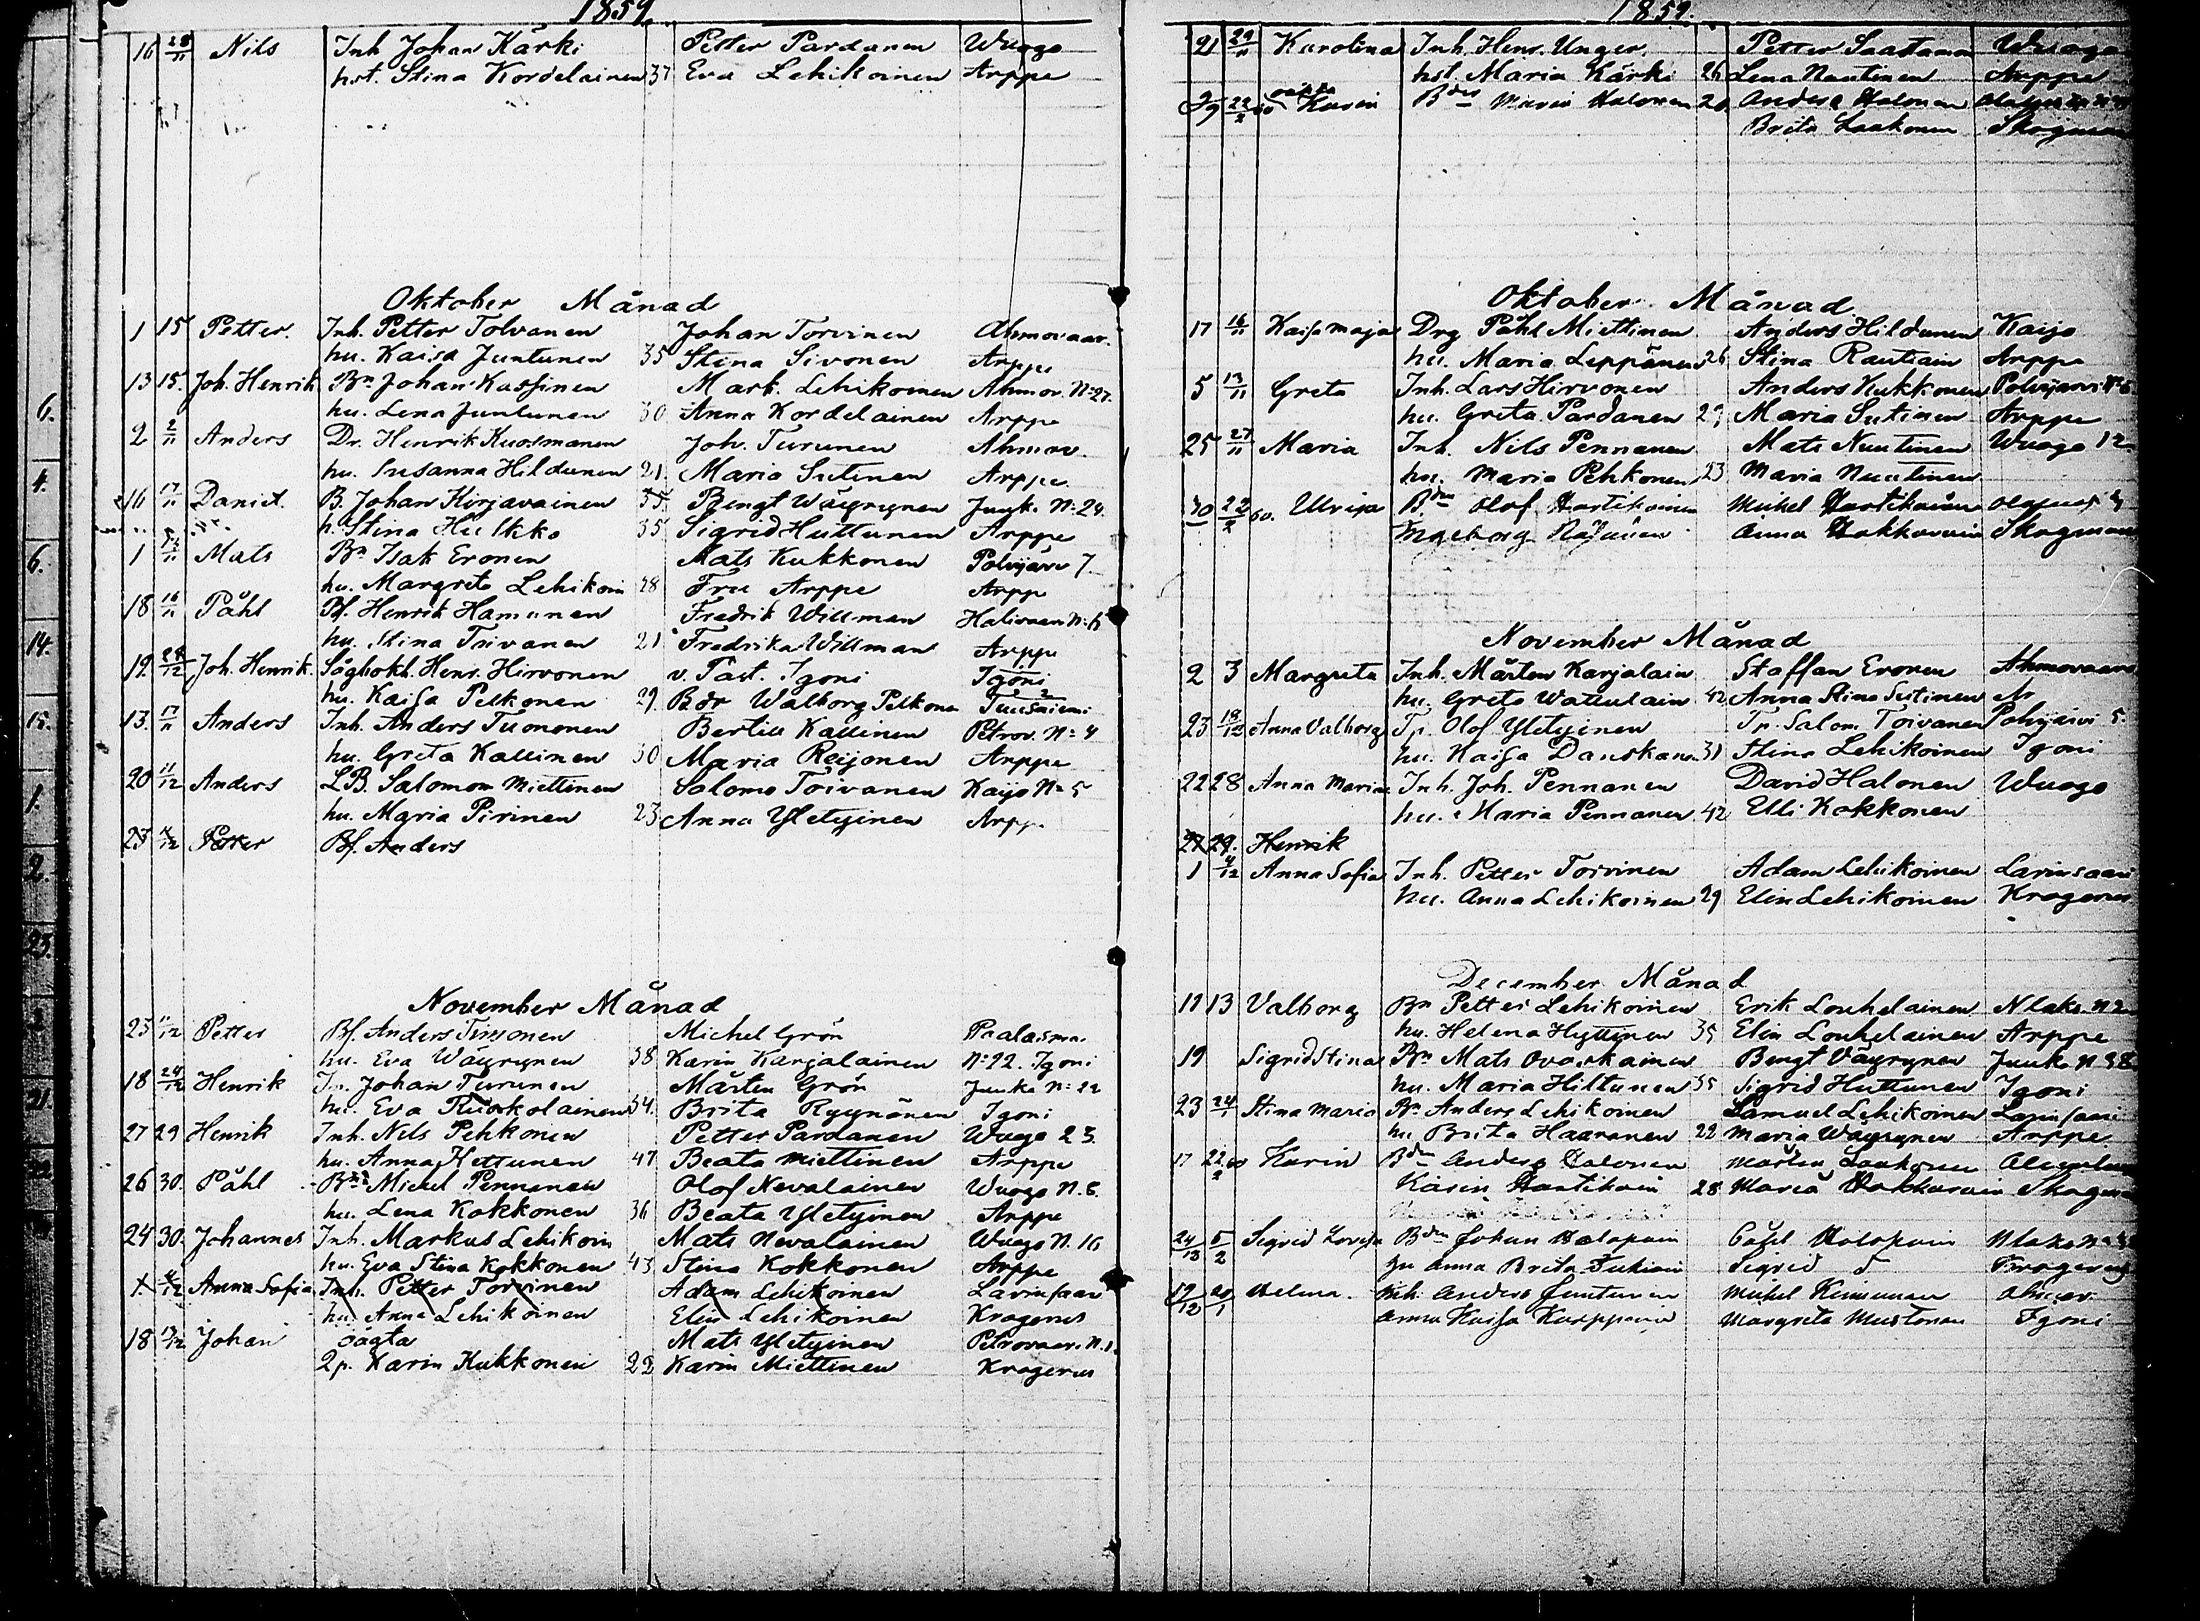 1859.
16 28/11 Nils Inh Johan Kärki Petter Pardanen Wuogo
hst. Stina Kordelainen 37 Eva Lehikoinen Arppe
Oktober Månad
1 15 Petter. Inh. Petter Tolvanen Johan Torvinen Ahmovaar.
hu. Kaisa Juntunen 35 Stina Sivonen Arppe
13 15. Joh. Henrik Bn Johan Kassinen Mark. Lehikoinen Ahmov. No 27.
hu. Lena Juntunen 30 Anna Kordelainen Arppe
2 2/11 Anders Dr. Henrik Kuosmanen Joh. Turunen Ahmov.
hu. Susanna Hildunen 21. Maria Sutinen Arppe
16 17/11 Daniel. B. Johan Kirjavainen 35. Bengt Wäyrynen Juuk. No 29.
h. Stina Hu 35 Sigrid Huttunen Arppe
1 Mats Bn Isak Eronen Mats Kukkonen Polvijärvi 7.
hu. Margreta Lehikoin 28 Fru Arppe Arpp
18 16/11 Påhl Bf. Henrik Hamunen Fredrik Willman Halivaar No 6
hu. Stina Toivanen 21 Fredrika Willman Arppe
19. 24/12 Joh. Henrik. Sågbokh. Henr. Hirvonen v. Past. Igoni Igoni
hu. Kaisa Pelkonen 29. Bdr Walborg Pelkonen Tuusniemi
13. 17/11 Anders Inh. Anders Tuononen Bertill Kallinen Petrov. No 4
hu. Greta Kallinen 30 Maria Reijonen Arppe
20 11/12 Anders LB. Salomon Miettinen Salomo Toivanen Kaijo No 5
hu. Maria Pirinen 23 Anna Yletyinen Arpp
23 11/12 Petter Bf. Anders
November Månad
23 11/12 Petter Bf. Anders Timonen Michel Grön Paalasma.
hu. Eva Wäyrynen 38 Karin Karjalainen No 22. Igoni
18 24/12 Henrik Tp. Johan Turunen Mårten Grön Juuka No 22
hu. Eva Ruoskolainen 34. Brita Ryynänen Igoni
27 29 Henrik Inh. Nils Pehkonen Petter Pardanen Wuogo 23.
hu. Anna Kettunen 47 Beata Miettinen Arppe
26 30. Påhl Bn Michel Pennanen Olof Nevalainen Wuogo N. 6.
hu. Lena Kokkonen 36 Beata Yletyinen Arppe
24 30. Johannes Inh. Markus Lehikoin Mats Nevalainen Wuogo N. 16
hu. Eva Stina Kokkonen 43 Stina Kokkonen Arppe
1. 4/12 Anna Sofia Inh. Petter Torvinen Adam Lehikoinen Larinsaari
hu. Anna Lehikoinen Elin Lehikoinen Kragerus
18 Johan Sagta Mats Yletyinen Petrovaar. N. 1.
Qp. Karin Kukkonen 22 Karin Miettinen Kragerus
1859.
21 29/11 Karolina Inh. Henr. Unger Petter Saastamoin Wuogo
hst. Maria Kärki 26 Lena Nuutinen Arppe
22/2 60 Karin Bdr Maria Halonen 20 Anders Halonen
Brita Laakonen Skogman
Oktober Månad
17 16/11 Kaisa Maja Drg Påhl Miettinen Anders Hildunen Kaijo
hu. Maria Leppänen 26 Stina Rautiain Arppe
5 13/11 Greta Inh. Lars Hirvonen Anders Kukkonen Polvijärvi No 6
hu. Greta Pardanen 29 Maria Sutinen Arppe
25 27/11 Maria Inh. Nils Pennanen Mats Nuutinen Wuogo 12
hu. Maria Pehkonen 23 Maria Nuutinen
30 22/2 60. Ulrika Bdn Olof Hartikainen Mickel Hartikainen
Ingeborg Anna Hakkarain Skogman
November Månad
2 3 Margreta Inh. Mårten Karjalain Staffan Eronen Ahmovaara
hu. Greta Watulain 42 Anna Stina Sutinen Ar
23 18/12 Anna Valborg Tp. Olof Yletyinen Tp. Salom. Toivanen Polvijärvi 5.
hu. Kaisa Danskanen 31 Stina Lehikoinen Igoni
22 28 Anna Maria Inh. Joh. Pennanen David Halonen Wuogo
hu. Maria Pennanen 42 Elli Kokkonen
27 29. Henrik
1 4/12 Anna Sofia Inh. Petter Torvinen Adam Lehikoinen Larinsaari
hu. Anna Lehikoinen 29 Elin Lehikoinen Kragerus
December Månad
11 13 Valborg Bn Petter Lehikoinen Erik Louhelainen Nlaks N 2
hu. Helena Hyttinen 35 Elin Louhelainen Arppe
19 Sigrid Stina Bn Mats Ovaskainen Bengt Väyrynen Juuka N 38
hu. Maria Hiltunen 35 Sigrid Huttunen Igoni
23 24/1 Stina Maria Bn Anders Lehikoinen Samuel Lehikoinen Larinsaari
hu Brita Haaranen 22 Maria Wäyrynen Arppe
17 22/2 60 Karin Bdn Anders Halonen Mårten Laakonen
Karin Hartikain 28 Maria Hakkarain Skogm
24/12 5/2 Sigrid Lovisa Bdn Johan Halapain Nlaks
hu Anna Brita Sigrid D Kragerus
19/12 20/1 Helena. Inh. Anders Juntunen Mickel Kinnunen Ahmov
Anna Kaisa Karppain Margreta Mustonen Igoni
6.
4.
6.
14.
15.
1.
2.
23.
21.